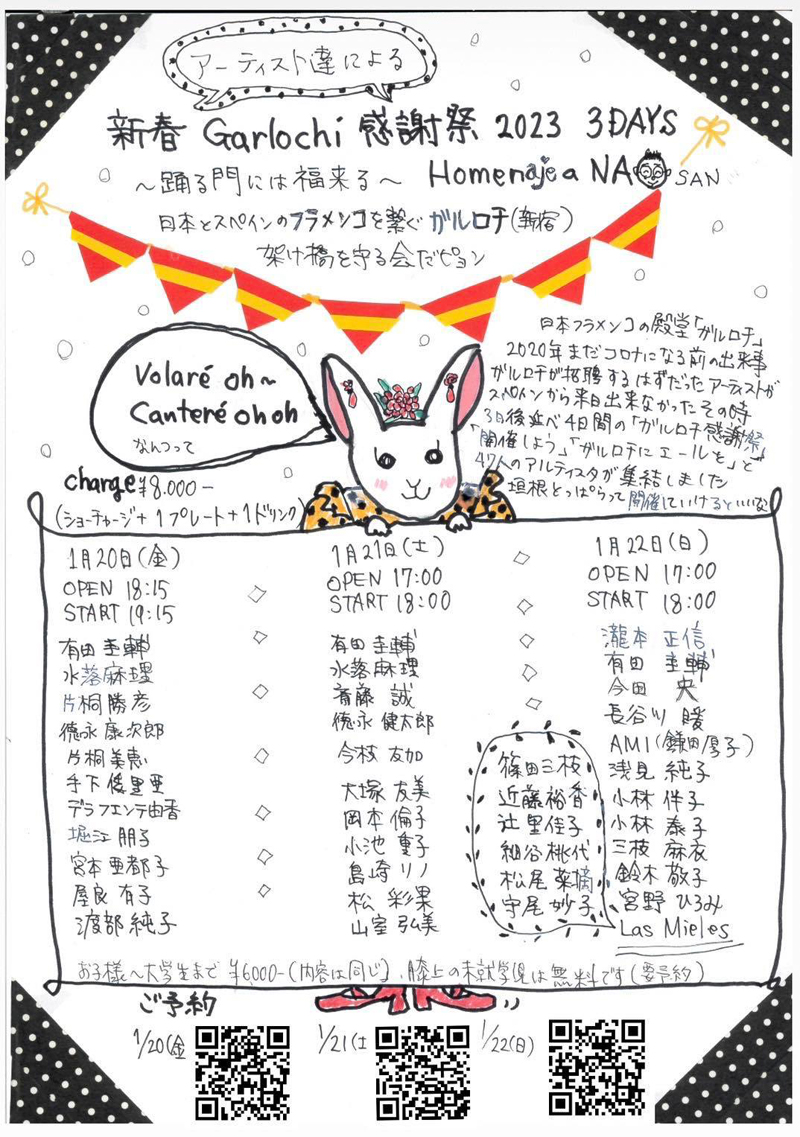 アーティスト達による
新春 Garlochi 感謝祭 2023 3DAYS
〜踊る門には福来る〜 Homenaje a NAO SAN
日本とスペインのフラメンコを繋ぐ ガルロチ(新宿)
架け橋を守る会だピョン
Volaré oh~
Canteré oh oh
なんつって
日本フラメンコの殿堂「ガルロチ」
2020年まだコロナになる前の出来事
ガルロチが招聘するはずだったアーティストが
スペインから来日出来なかったその時
3日後延べ4日間の「ガルロチ感謝祭」
「開催しよう」「ガルロチにエールを」と
47人のアルティスタが集結しました
垣根とっぱらって開催していけるといいな
charge ¥8.000-
(ショーチャージ+1プレート+1ドリンク)
1月20日(金)
OPEN 18:15
START 19:15
有田圭輔
水落麻理
片桐勝彦
徳永康次郎
片桐美恵
手下倭里亜
デラフエンテ由香
堀江朋子
宮本亜都子
屋良有子
渡部純子
1月21日(土)
OPEN 17:00
START 18:00
有田圭輔
水落麻理
斎藤 誠
徳永健太郎
今枝友加
大塚友美
岡本倫子
小池重子
島崎リノ
松 彩果
山室弘美
1月22日(日)
OPEN 17:00
START 18:00
瀧本正信
有田圭輔
今田 央
長谷川 暖
AMI(鎌田厚子)
浅見純子
小林伴子
小林泰子
三枝麻衣
鈴木敬子
宮野ひろみ
Las Mieles
篠田三枝
近藤裕香
辻里佳子
細谷桃代
松尾菜摘
宇尾妙子
お子様〜大学生まで ¥6000-(内容は同じ)、膝上の未就学児は無料です(要予約)
ご予約
1/20(金
1/21(土
1/22(日)